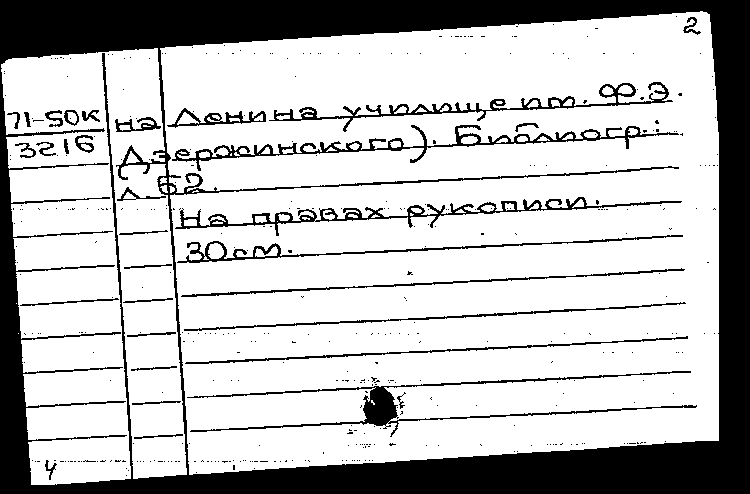 2
71-50к
3216
на Ленина училище им. Ф.Э.
Дзержинского). Библиогр.:
л. 62.
На правах рукописи.
30см.
4